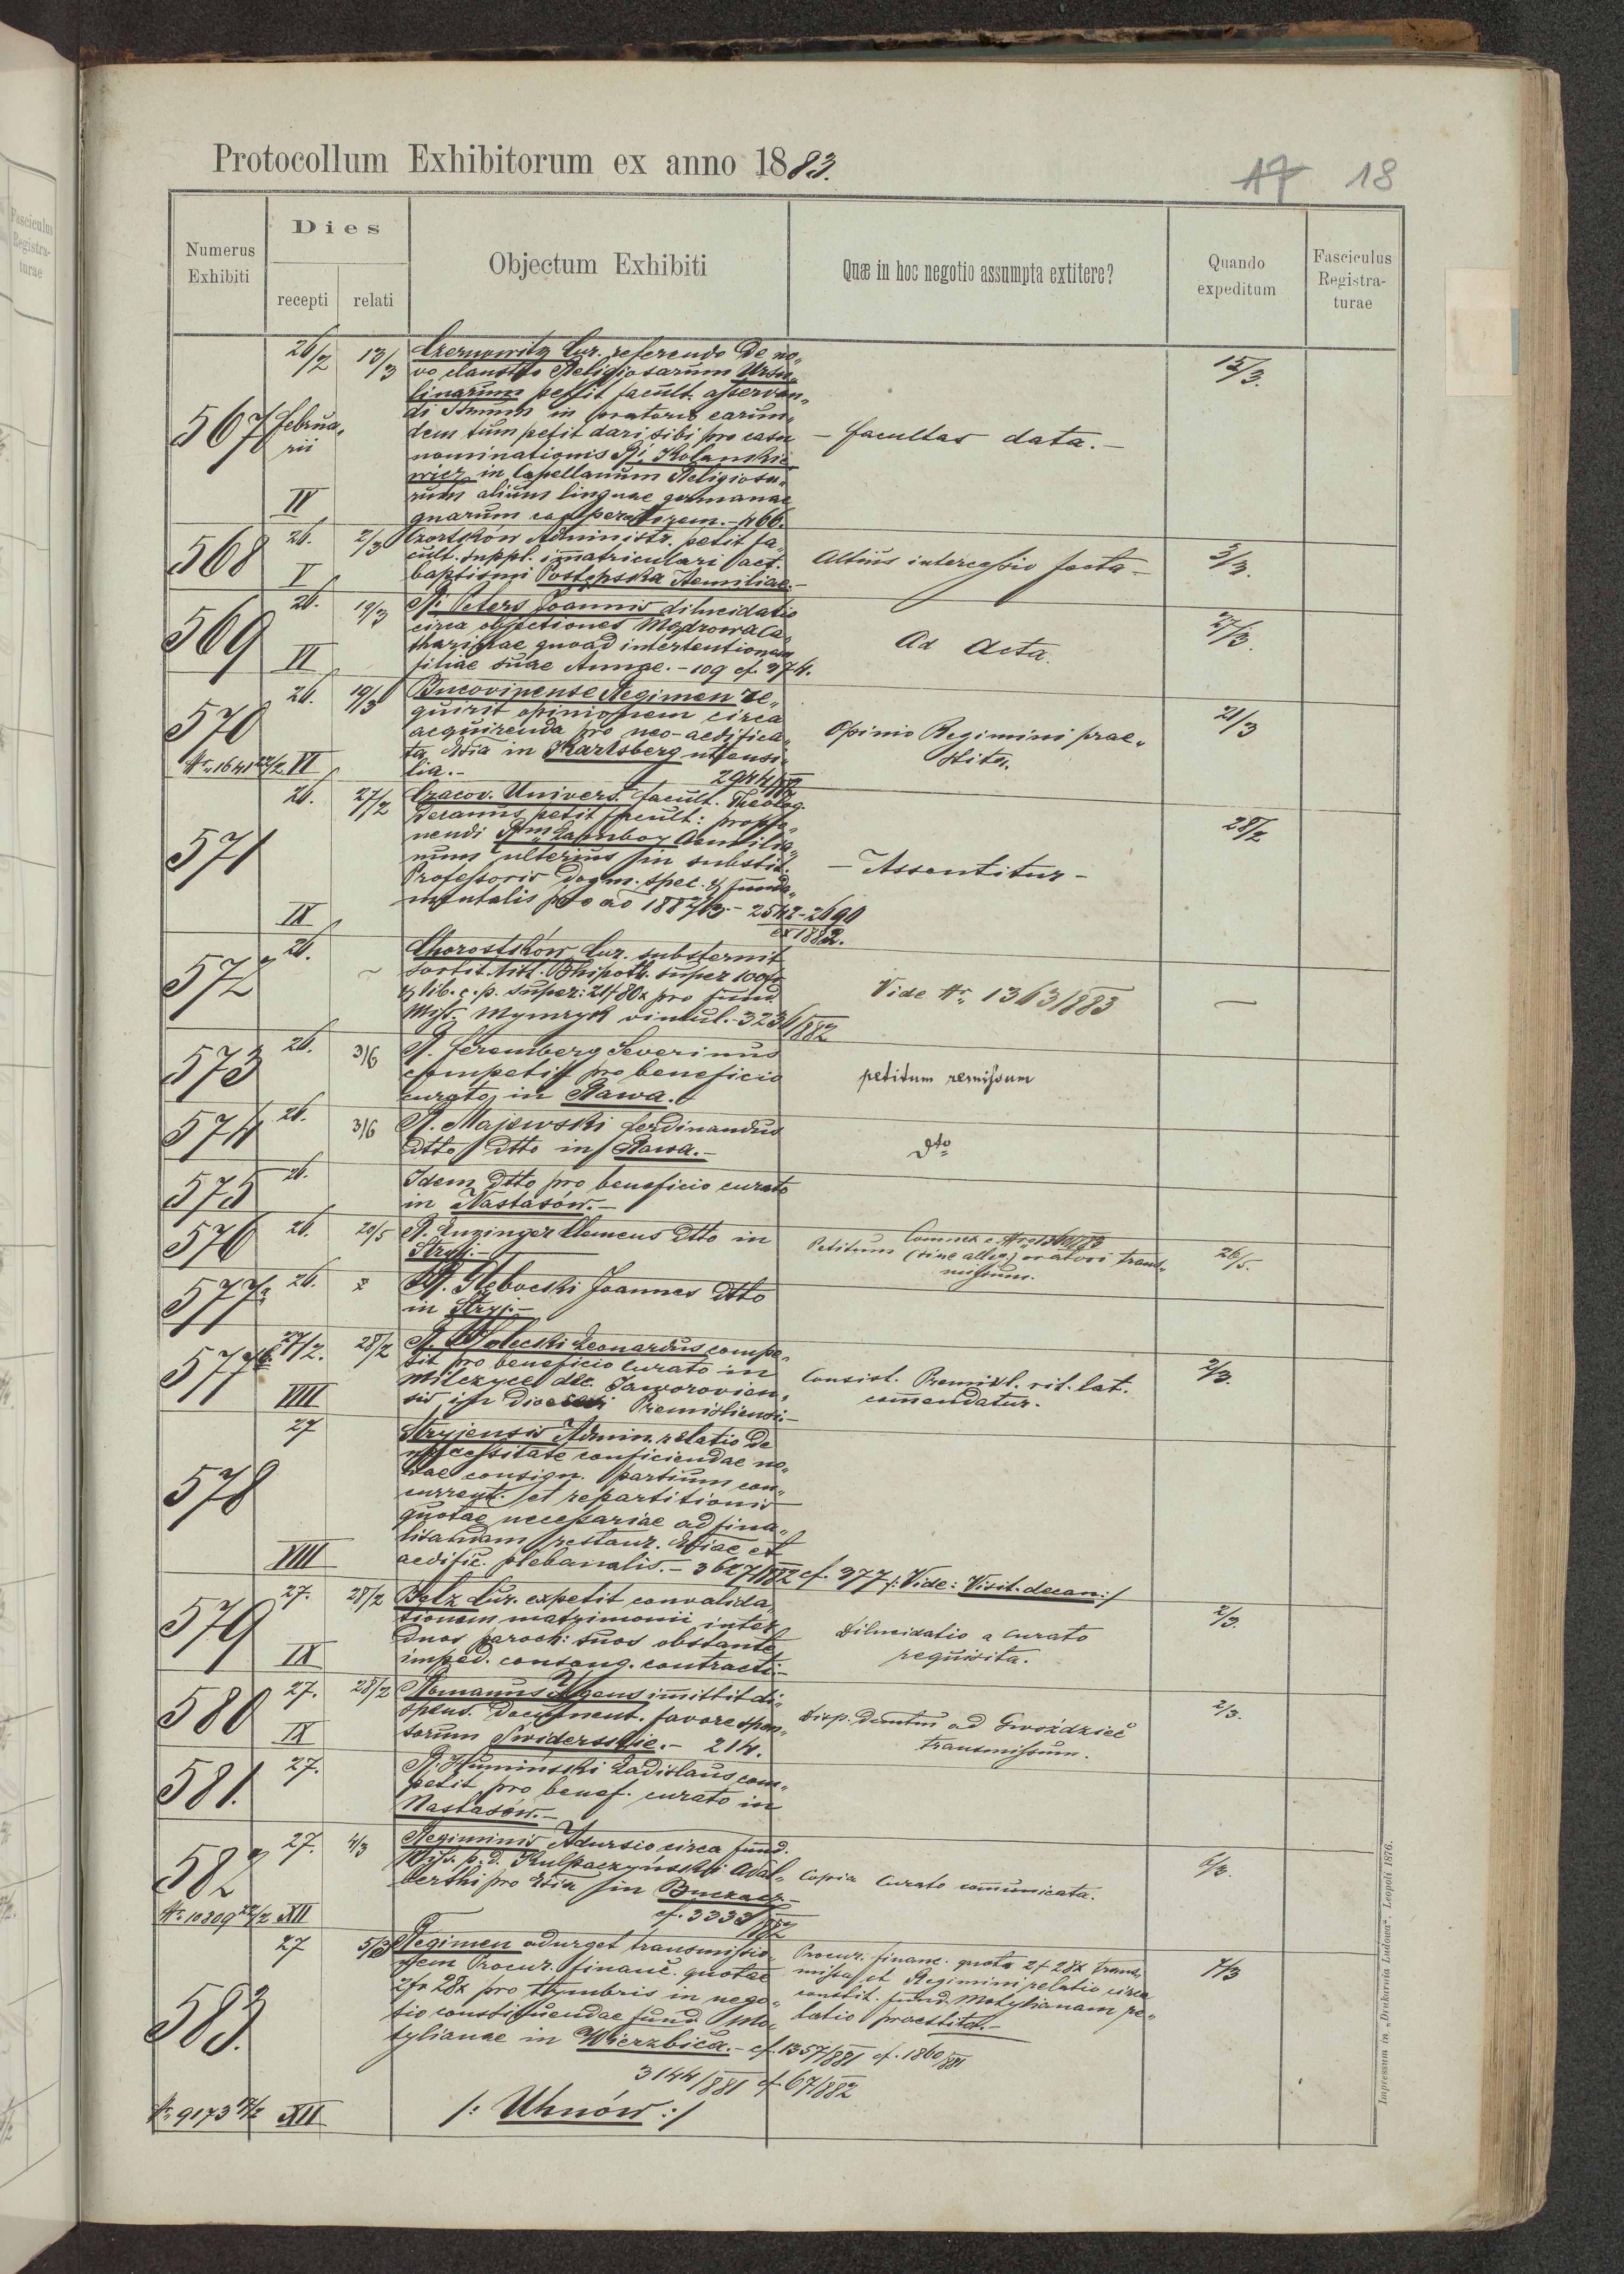 Protocollum Exhibitorum ex anno 1883.
17 18
Numerus Exhibiti
Dies
recepti relati
Objectum Exhibiti
Quæ in hoc negotio assumpta extitere?
Quando expeditum
Fasciculus Registra-turae
567 26/2 februa„rii IV 13/3
Czernowitz Cur. referendo de no„
vo claustro Religiosarum Ursu„
linarum petit facult. asservan„
di Ssmum in oratorio earum„
dem tum petit dari sibi pro casu
nominationis R. Kolankie„
wicz in Capellanum Religiosa„
rum alium linguae germanae
gnarum cooperatorem. - 466.
- facultas data. -
15/3.
568 26. V 2/3
Czortków Administr. petit fa„
cult. suppl. immatriculari act.
baptismi Postępska Aemiliae. -
Altius intercessio facta -
3/3.
569 26. VI 19/3
R. Peters Joannis dilucidatio
circa objectiones Mądrowa Ca„
tharinae quoad intertentionem
filiae suae Annae. - 109 cf. 974.
Ad Acta.
27/3.
570 26. 19/3
Nr. 1641 22/2 VI
Bucovinense Regimen re„
quirit opinionem circa
acquirenda pro neo-aedifica„
ta Eccla in Karlsberg utensi„
lia. - 2944/882
Opinio Regimini prae„
stita.
21/3
571 26. IX 27/2
Cracov. Univers. facult. Theolog.
Decanus petit facult: propo„
nendi Aemilia„
num ulterius in substit.
Professoris dogm. spec. & funda„
mentalis pro ao 1882/3. - 2542-2690
ex 1882.
- Assentitur -
28/2
572 26. ~
Chorostków Cur. substernit
sortit. tit. B. hipoth. super 100 fr
& lib. c. p. super: 21 f 80 x pro fund.
Miss. Mymryk vincul. - 3236/882
Vide Nr. 1363/883
—
573 26. 3/6
R. Feremberg Severinus
competit pro beneficio
curato in Rawa.
petitum remissum
574 26. 3/6
R. Majewski Ferdinandus
dtto dtto in Rawa. -
dto
575 26.
Idem dtto pro beneficio curato
in Nastasów. -
576 26. 20/5
R. Enzinger Clemens dtto in
Stryj. -
Petitum (sine alleg.) oratori trans„
missum.
26/5.
577/a 26.
R. Głębocki Joannes dtto
in Stryj. -
577/b. 27/2. VIII 28/2
R. Wolecski Leonardus compe„
tit pro beneficio curato in
Milczyce dec. Jaworovien„
sis in Dioecesi Premisliensi. -
Consist. Premisl. rit. lat.
commendatur.
2/3.
578 27 VIII
Stryjensis Admin. relatio de
necessitate conficiendae no„
vae consign. partium con„
current. et repartitionis
quotae necessariae ad fina„
lisandam restaur. Eccliae et
aedific. plebanalis. - 3627/882 cf. 377 /: Vide: Visit. decan: /
579 27. IX 28/2
Bełz Cur. expetit convalida„
tionem matrimonii inter
duos paroch: suos obstante
imped. consang. contracti. -
Dilucidatio a Curato
requisita.
2/3.
580 27. IX 28/2
Romanus Agens immittit di„
spens. document. favore spon„
sorum Świderskie. - 214.
Disp. Dcutm ad Gwoździec
transmissum.
2/3.
581. 27.
R. Humiński Ladislaus com„
petit pro benef. curato in
Nastasów. -
582 27. 4/3
Nr. 10309 22/2 XII
Regiminis Adursio circa fund.
Miss. p. d. Kulpaczyński Adal„
berthi pro Eccla in Buczacz. -
cf. 3333/882
Copia Curato communicata.
6/3.
583. 27 5/3
Nr. 9173 17/2 XII
Regimen adurget transmissio„
nem Procur. financ. quotae
2 f 28 x pro tymbris in nego„
tio constituendae fund. Mo„
tylianae in Wierzbica. - cf. 1357/881 cf. 1860/881
3144/881 cf 67/882
/: Uhnów :/
Procur. financ. quota 2 f 28 x trans„
missa et Regimini relatio circa
constit. fund. Motylianam re„
latio praestita. -
7/3
Impressum in „Drukarnia Ludowa". Leopoli 1876.